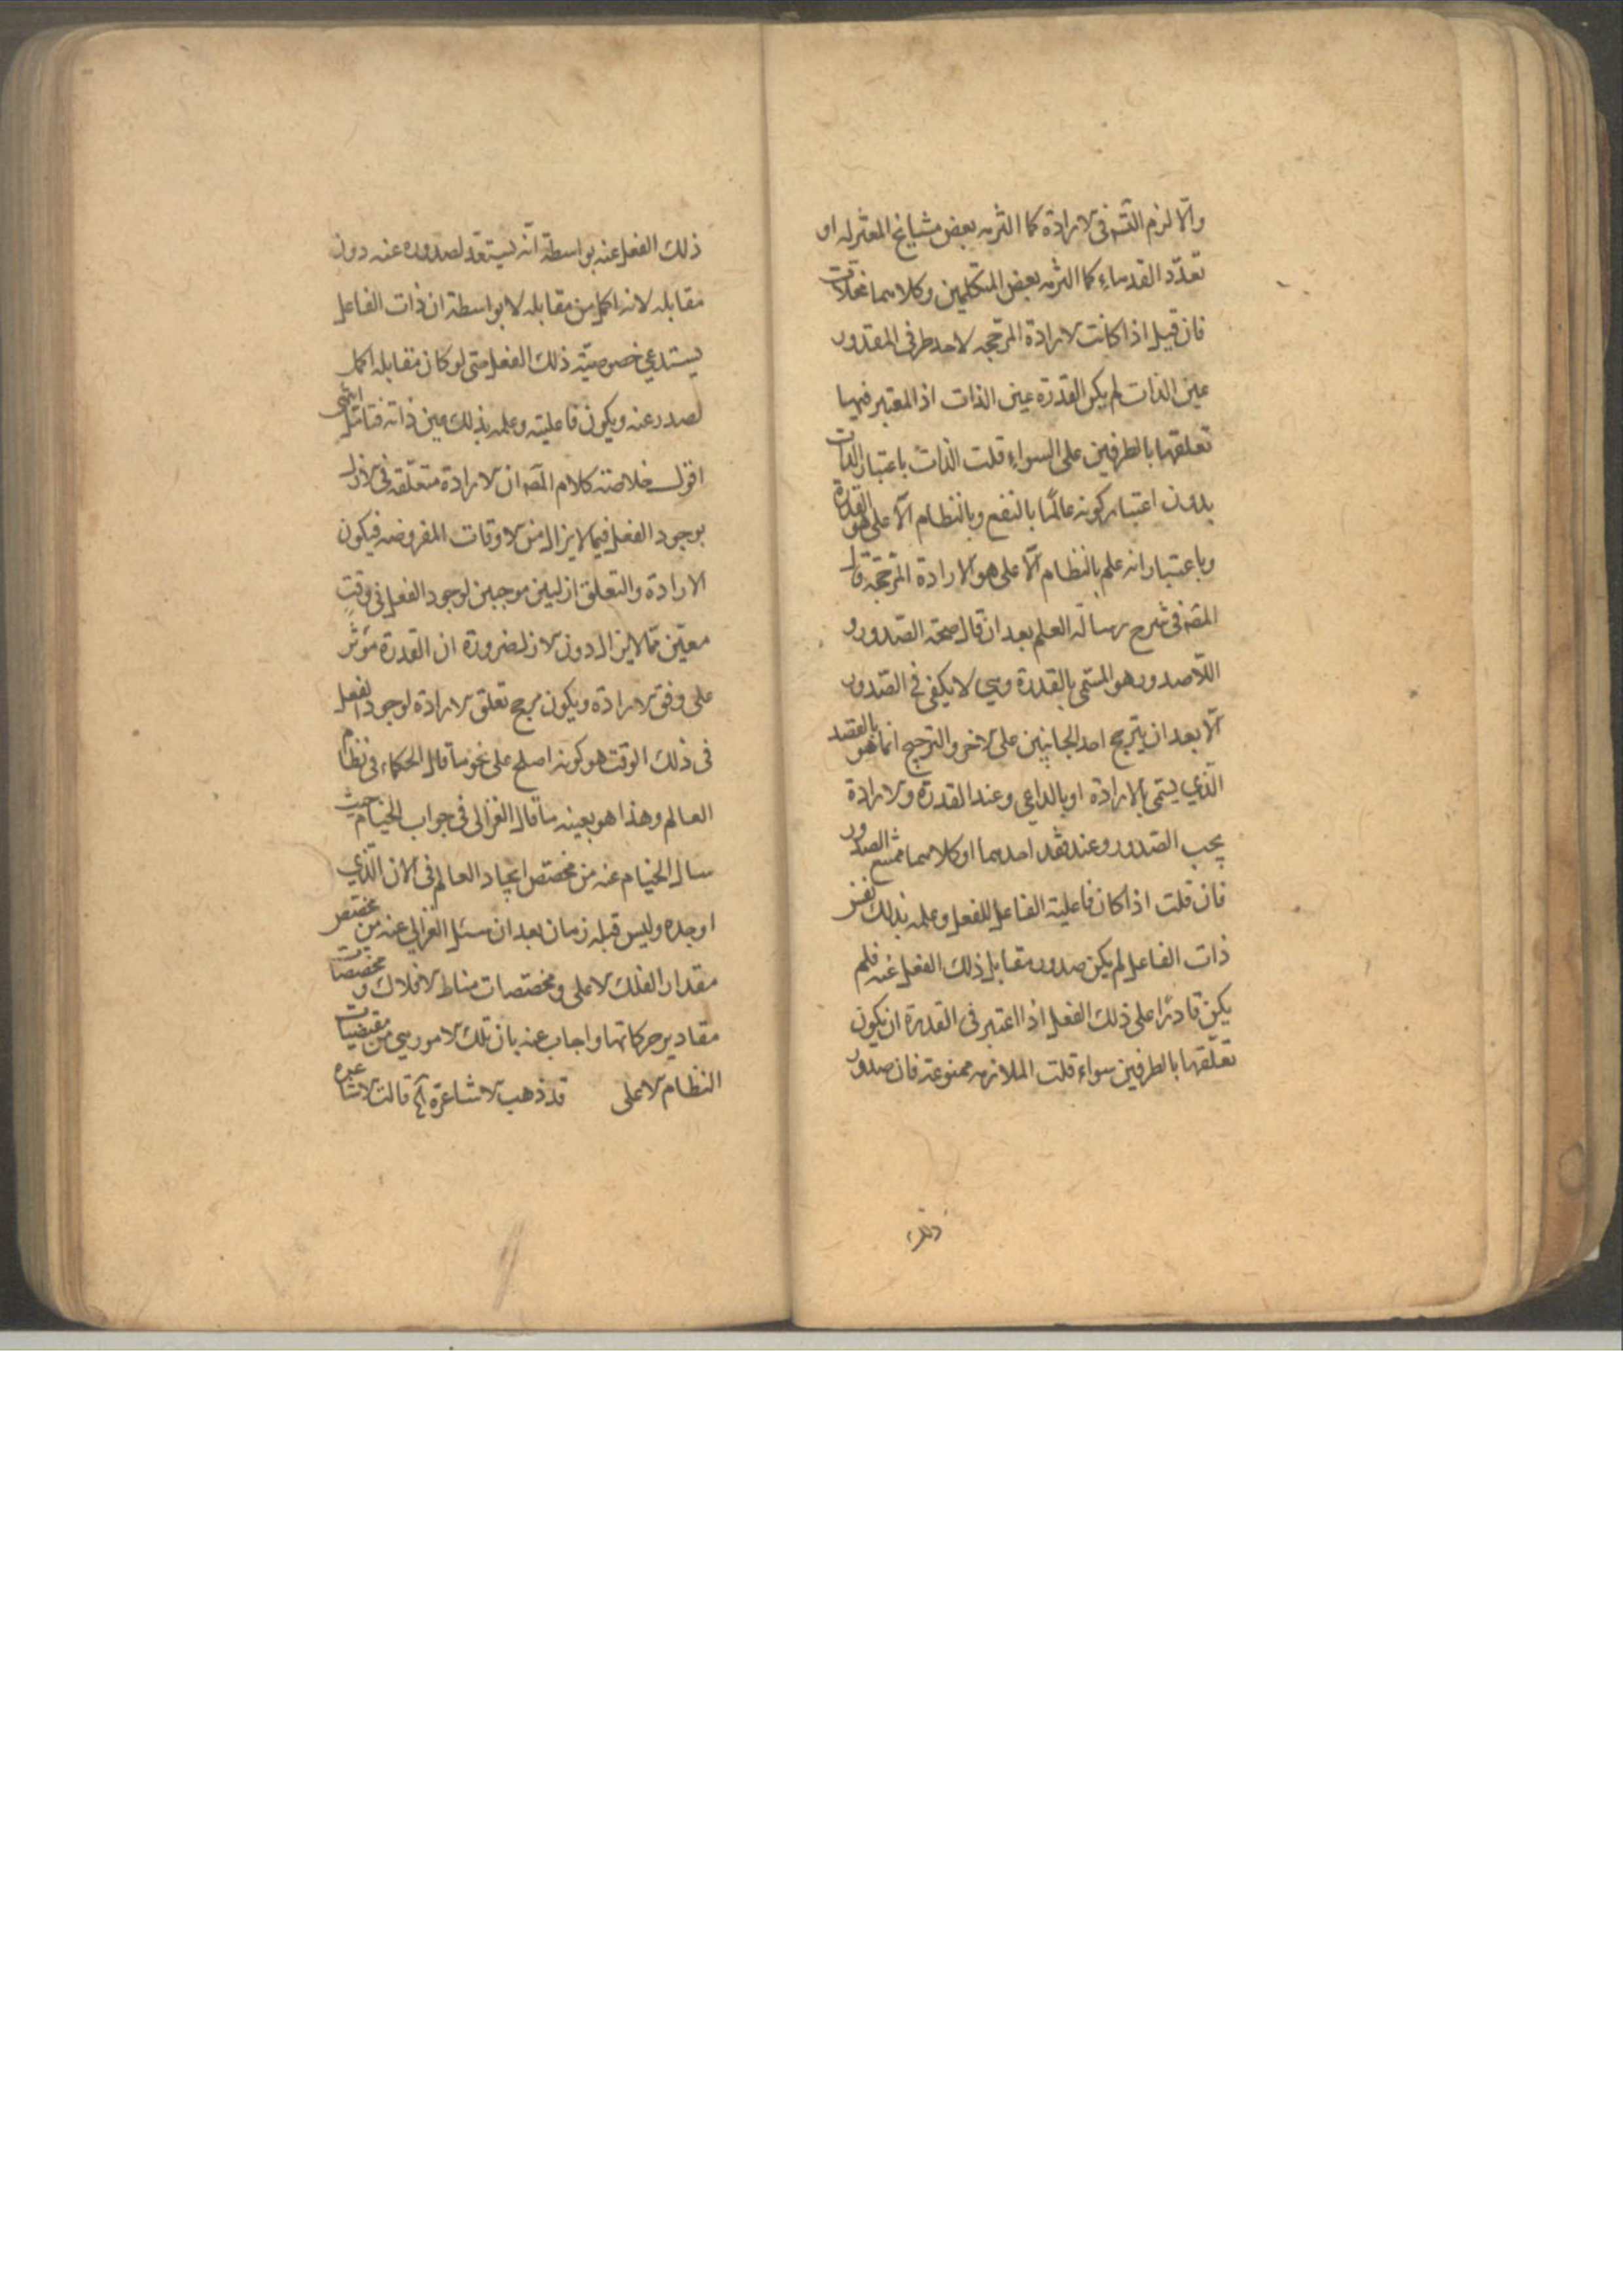 والا لزم التسم فى الارادة كما التزمه بعض مشايخ المعتزله او
تعدّد القدماء كما التزمه بعض المتكلمين وكلاهما محالات
فان قيل اذا كانت الارادة المرجحه لاحد طرفى المقدور
عين الذات لم يكن القدرة عين الذات اذ المعتبر فيها
تعلقها بالطرفين على السواء قلت الذات باعتبار الذات
بدون اعتبار كونه عالمًا بالنفع وبالنظام الاعلى هو القدرة
وباعتبار انه علم بالنظام الاعلى هو الارادة المرجحة قال
المص فى شرح رسالة العلم بعد ان قال صحة الصّدور و
اللّاصدور هو المسمّى بالقدرة وهي لا يكفى فى الصّدور
الّا بعد ان يترجح احد الجانبين على الاخر والترجيح انما هو بالقصد
الّذي يسمّى بالارادة او بالداعي وعند القدرة والارادة
يجب الصّدور وعند فقد احدهما او كلاهما يمتنع الصدور
فان قلت اذا كان فاعلية الفاعل للفعل وعلمه بذلك نفس
ذات الفاعل لم يكن صدور مقابل ذلك الفعل عنه فلم
يكن قادرًا على ذلك الفعل اذا اعتبر فى القدرة ان يكون
تعلّقها بالطرفين سواء قلت الملازمه ممنوعة فان صدور
ذلك
ذلك الفعل عنه بواسطة انّه يستعدّ لصدوره عنه دون
مقابله لانه اكمل من مقابله لا بواسطة ان ذات الفاعل
يستدعي خصوصيّة ذلك الفعل حتى لو كان مقابله اكمل
لصدر عنه ويكون فاعليته وعلمه بذلك عين ذاته فتامّل انتهى
اقول خلاصة كلام المص ان الارادة متعلّقه فى الازل
بوجود الفعل فيما لا يزال من الاوقات المفروضه فيكون
الارادة والتعلق ازليين موجبين لوجود الفعل فى وقتٍ
معيّن ممّا لا يزال دون الازل ضرورة ان القدرة مؤثر
على وفق الارادة ويكون مرجح تعلق الارادة لوجود الفعل
فى ذلك الوقت هو كونه اصلح على نحو ما قال الحكماء فى نظام
العالم وهذا هو بعينه ما قال الغزالى فى جواب الخيام حيث
سال الخيام عنه من مخصّص ايجاد العالم فى الان الّذي
اوجده وليس قبله زمان بعد ان سئل الغزالي عنه من مخصّص
مقدار الفلك الاعلى ومخصّصات مناط الافلاك و مخصّصات
مقادير حركاتها واجاب عنه بان تلك الامور هي من مقتضيات
النظام الاعلى قد ذهب الاشاعرة آه قالت الاشاعره